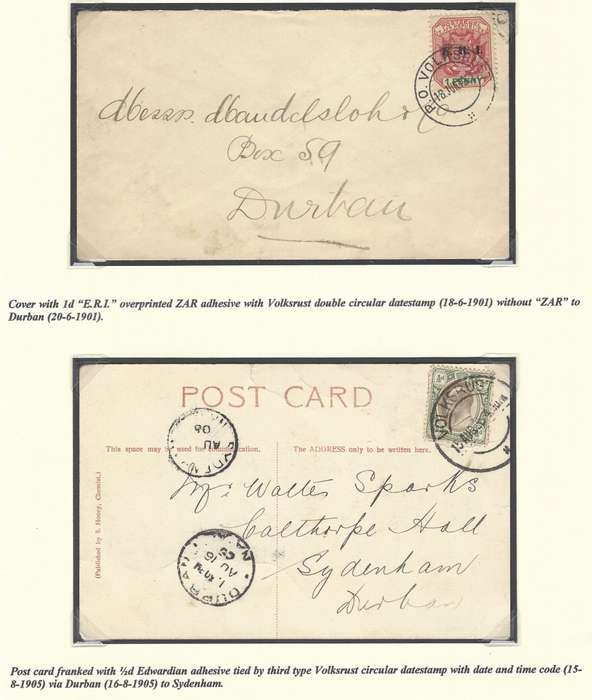 E.R.I.
1 PENNY
P.O. VOLKSRUST
18 JUN
Messrs. Mandelsloh &
Box 59
Durban
Cover with 1d “E.R.I.” overprinted ZAR adhesive with Volksrust double circular datestamp (18-6-1901) without “ZAR” to
Durban (20-6-1901).
POST CARD
VOLKSRUST
15 AUG 05
AU
This space may be used for communication.
The ADDRESS only to be written here.
(Published by S. Henry, Chemist.)
Mr. Walter Sparks
Calthorpe Hall
Sydenham
Durban
DURBAN
AU 16
05
Post card franked with ½d Edwardian adhesive tied by third type Volksrust circular datestamp with date and time code (15-
8-1905) via Durban (16-8-1905) to Sydenham.